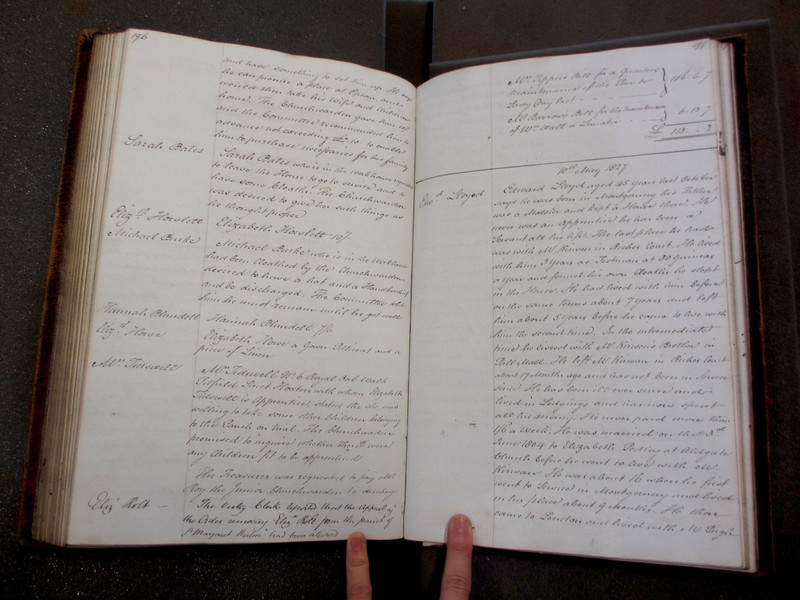 196
and have something to set him up. He says
he can procure a place at Epsom, and
would then take his Wife and Children
home. The Churchwarden gave him 10/
and the Committee recommended him to
advance not exceeding £ 10 to enable
him to purchase necessaries for his family
Sarah Bates
Sarah Bates who is in the workhouse requested
to leave the House to go to service and to
have some Cloaths. The Churchwarden
was desired to give her such things as
he thought proper
Eliz:th Howlett
Elizabeth Howlett 10/
Michael Burke
Michael Burke who is in the Workhouse
had been Cloathed by the Churchwarden
desired to have a hat and a Handkerchief
and be discharged. The Committee told
him he must remain until he got well
Hannah Blundell
Hannah Blundell 7/6
Eliz:th Howe
Elizabeth Howe a Gown Petticoat and a
piece of Linen
Mr. Tidswell
Mr. Tidswell No 6 Royal Oak Walk
Street Hoxton with whom Elizabeth
is Apprentice, states she is
willing to take some other Children belonging
to the Parish on trial. The Churchwarden
promised to inquire whether there were
any Children fit to be apprenticed
The Treasurer was requested to pay Mr
Roy the Junior Churchwarden to discharge
Eliz Holt
The Vestry Clerk reported that the Appeal of
the Order removing Eliz:th Holt from the parish of
St Margaret had been allowed
197
Mr. Tipple's Bill for a Quarters
maintenance of the Poor to
Lady Day last
116. 6. 7
Mr Burrows's Bill for the maintenance
of Wm. Wall a Lunatic
6. 13. 7
£
10th May 1827
Edwd. Lloyd
Edward Lloyd aged 45 years last October
says he was born in Montgomery his Father
was a Master and kept a House there. He
never was an apprentice he has been a
Servant all his life. The last place he had
was with Mr Kinwan in Riches Court. He lived
with him 3 Years as Footman at 30 Guineas
a year and found his own Cloaths he slept
in the House. He had lived with him before
on the same terms about 7 years and left
him about 5 Years before he came to live with
him the second time. In the intermediate
time he lived with Mr Kinwan's Brother in
Pall Mall. He left Mr Kinwan in Riches Court
about 17 Months ago and has not been in Service
since. He has been ill ever since and
lived in Lodgings and has now spent
all his money. He never paid more than
a week. He was married on the 3rd
June 1804 to Elizabeth at Aldgate
Church before he went to live with Mr
Kinwan. He was about 16 when he first
went to Service in Montgomery and lived
in his place about 9 Months. He then
came to London and lived with Mr Pugh